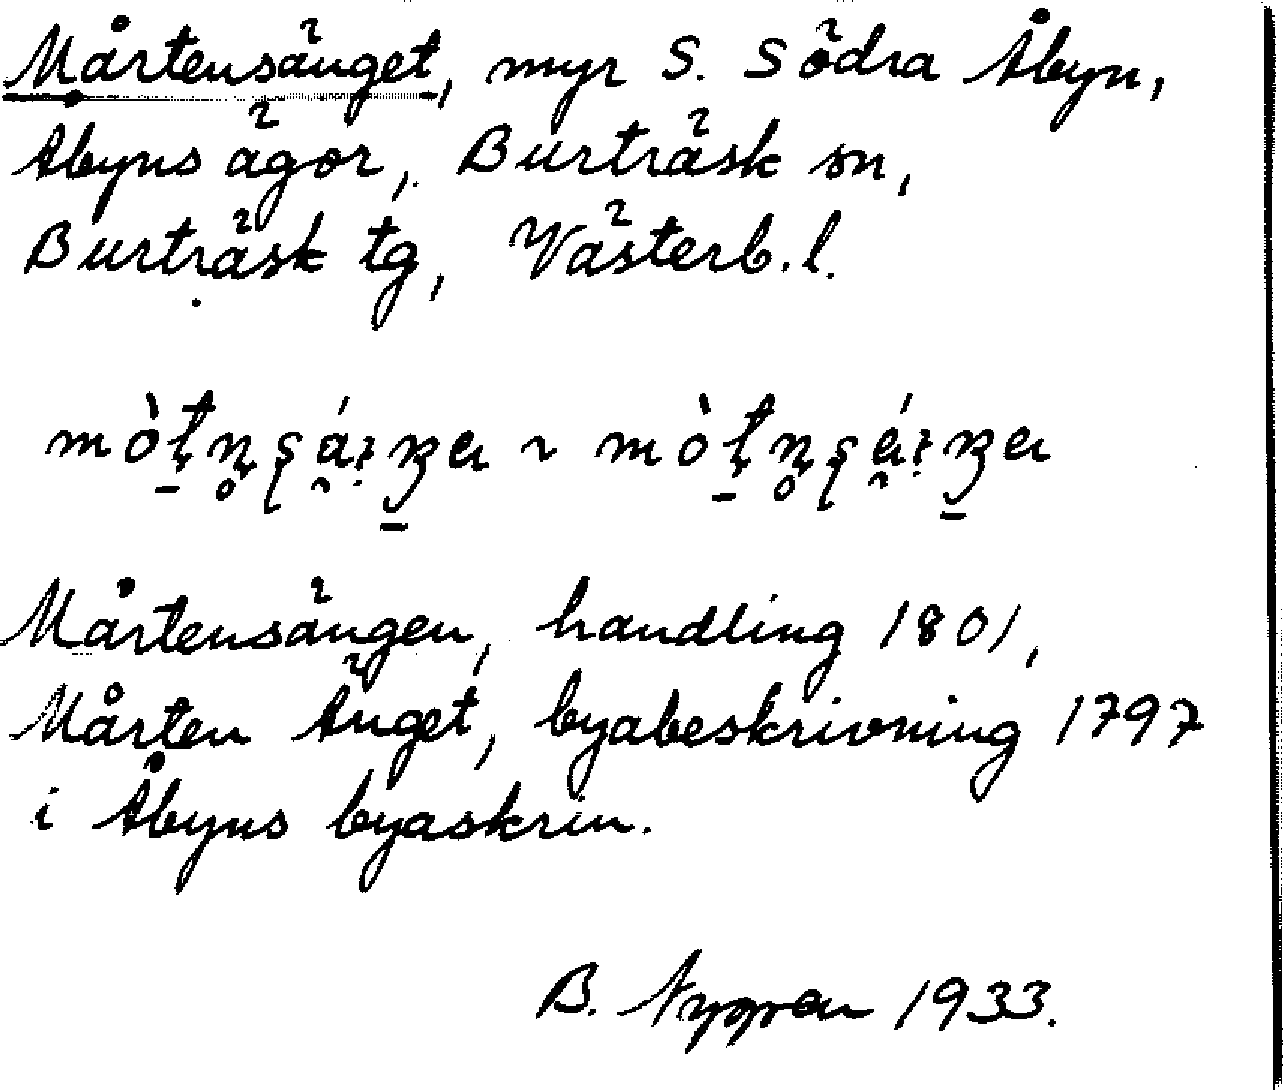 Mårtensänget, myr S. Södra Åbyn,
Åbyns ägor, Burträsk sn,
Burträsk tg, Västerb. l.
Mårtensängen, handling 1801,
Mårten Änget, byabeskrivning 1797
i Åbyns byaskrin.
B. Nygren 1933.